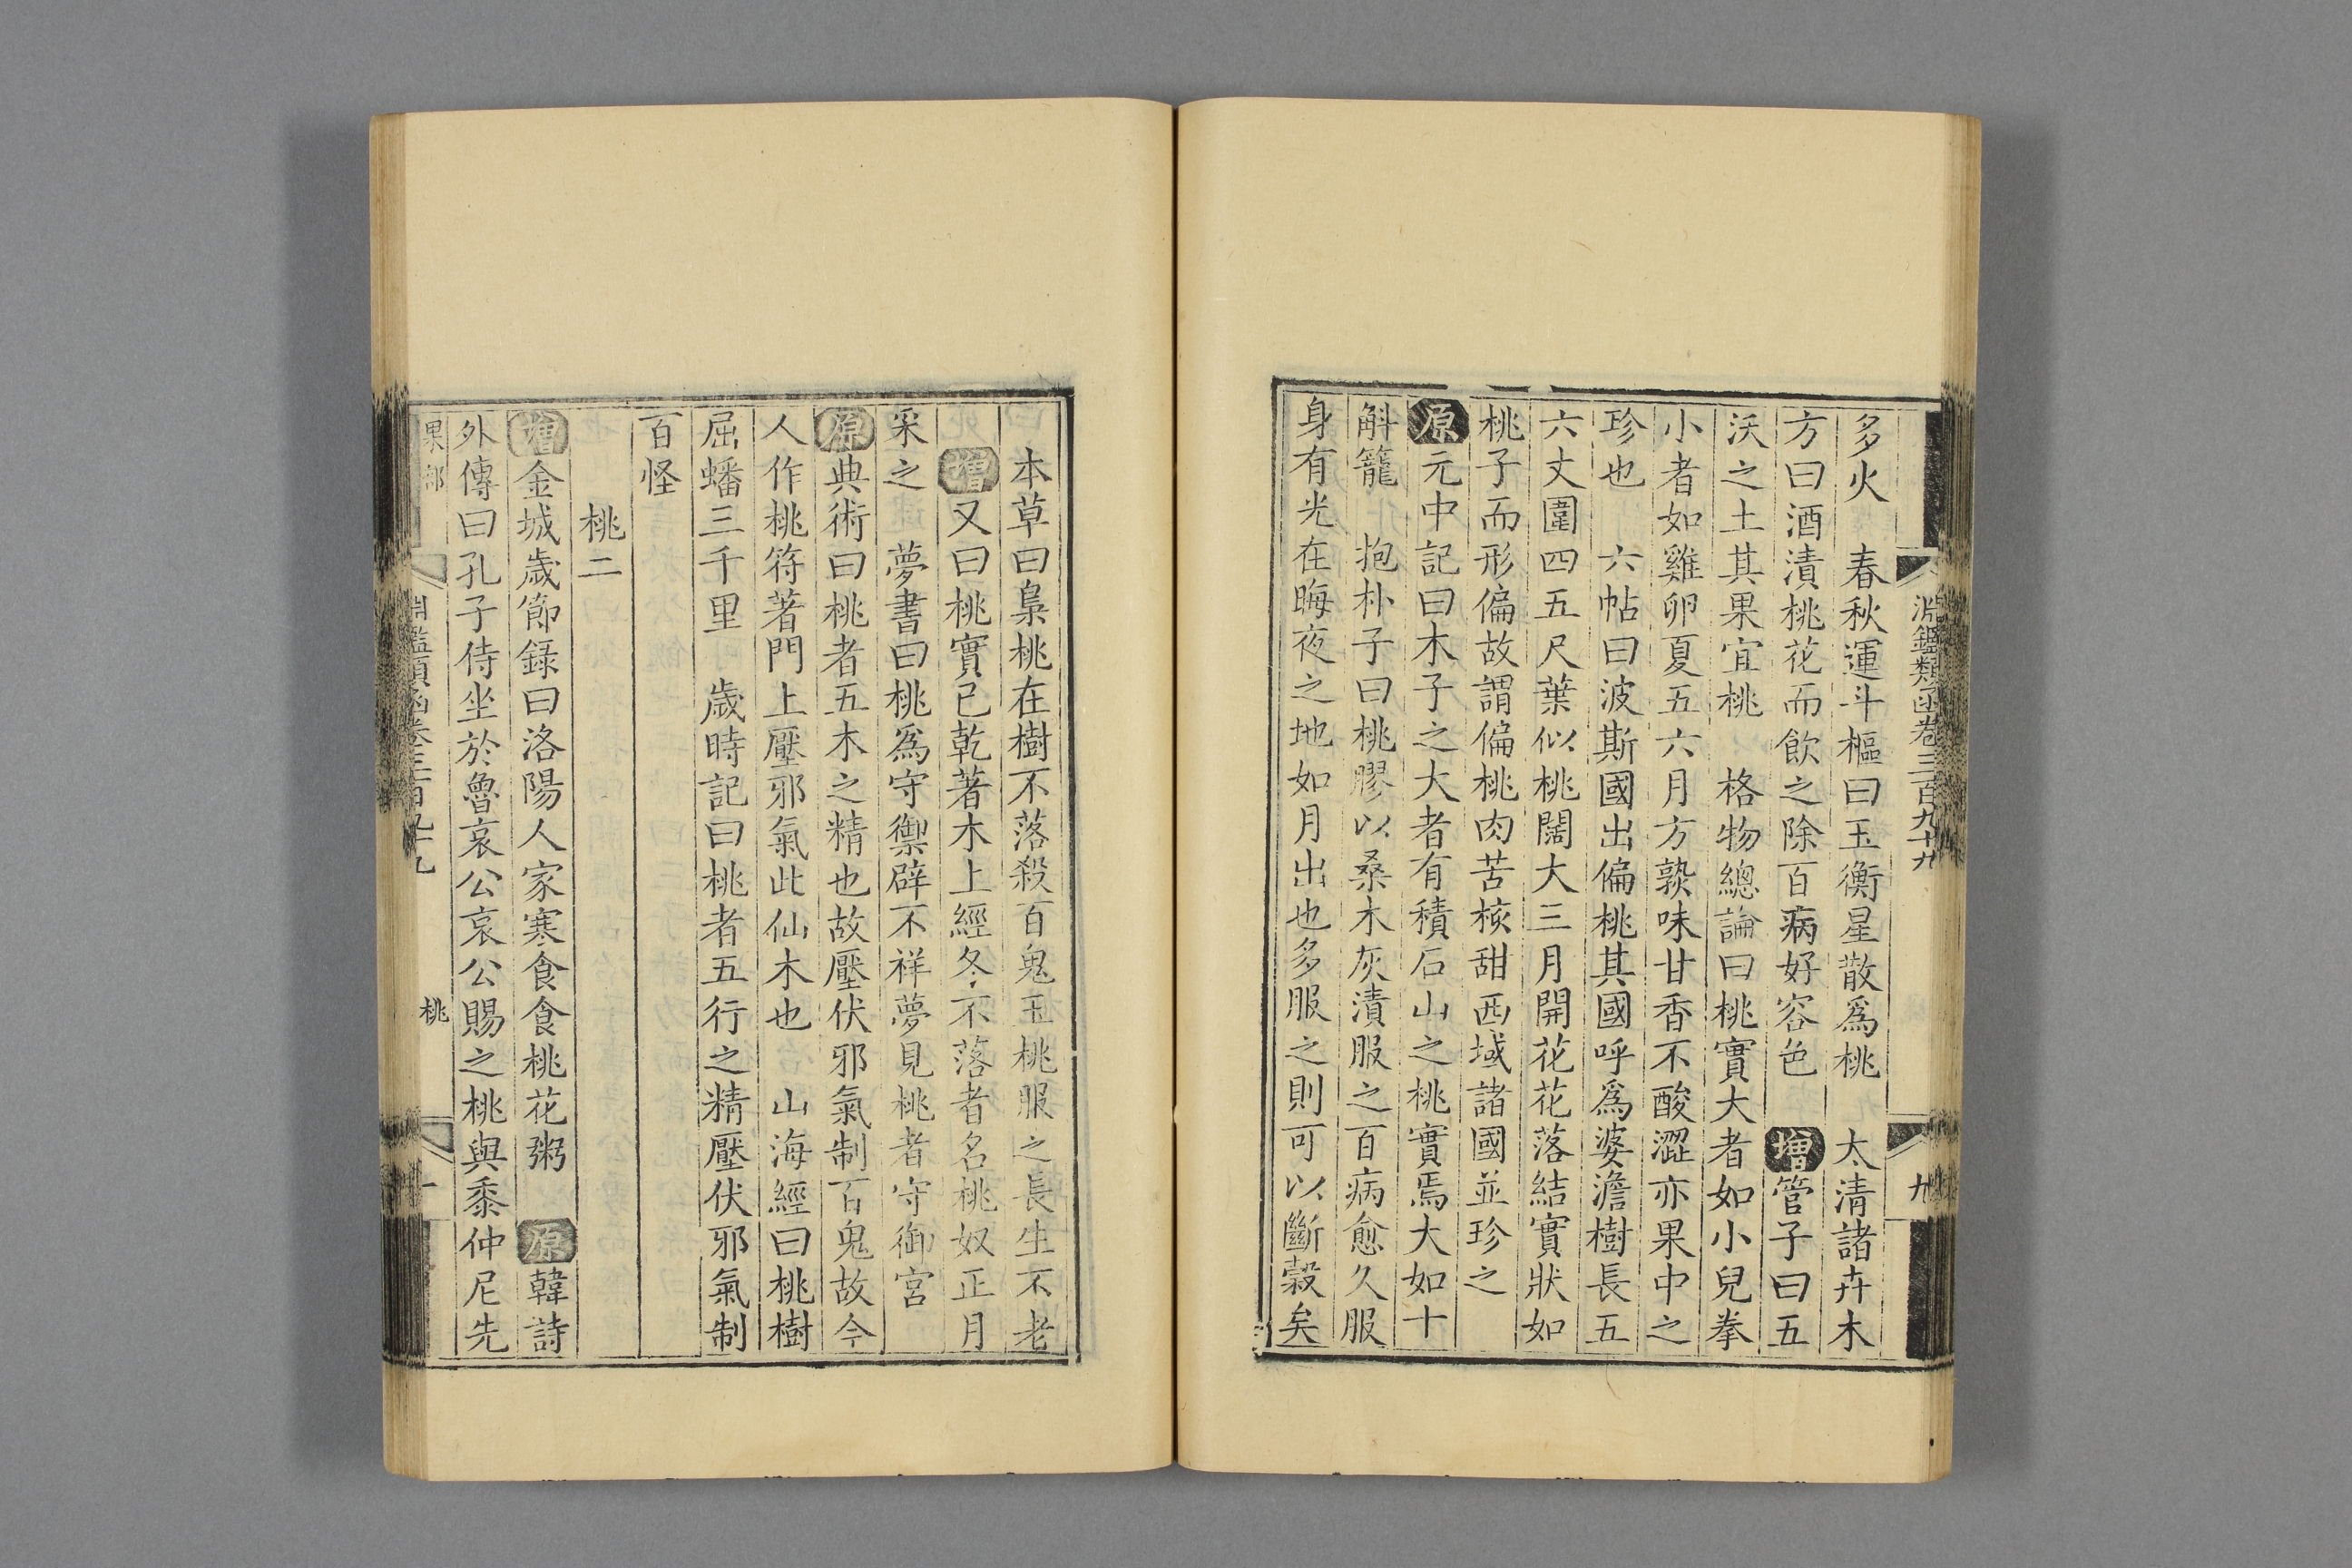 淵鑑類函卷三百九十九
九
多火　春秋運斗樞曰玉衡星散爲桃　太清諸卉木
方曰酒漬桃花而飲之除百病好容色　增管子曰五
沃之土其果宜桃　格物總論曰桃實大者如小兒拳
小者如雞卵夏五六月方孰味甘香不酸澀亦果中之
珍也　六帖曰波斯國出偏桃其國呼爲婆澹樹長五
六丈圍四五尺葉似桃闊大三月開花花落結實狀如
桃子而形偏故謂偏桃肉苦核甜西域諸國並珍之
原元中記曰木子之大者有積石山之桃實焉大如十
斛籠　抱朴子曰桃膠以桑木灰漬服之百病愈久服
身有光在晦夜之地如月出也多服之則可以斷穀矣
本草曰梟桃在樹不落殺百鬼玉桃服之長生不老
增又曰桃實已乾著木上經冬不落者名桃奴正月
采之　夢書曰桃爲守禦辟不祥夢見桃者守御宮
原典術曰桃者五木之精也故壓伏邪氣制百鬼故今
人作桃符著門上壓邪氣此仙木也　山海經曰桃樹
屈蟠三千里　歲時記曰桃者五行之精壓伏邪氣制
百怪
桃二
增金城歲節錄曰洛陽人家寒食食桃花粥　原韓詩
外傳曰孔子侍坐於魯哀公哀公賜之桃與黍仲尼先
果部
淵鑑類函卷三百九十九
桃